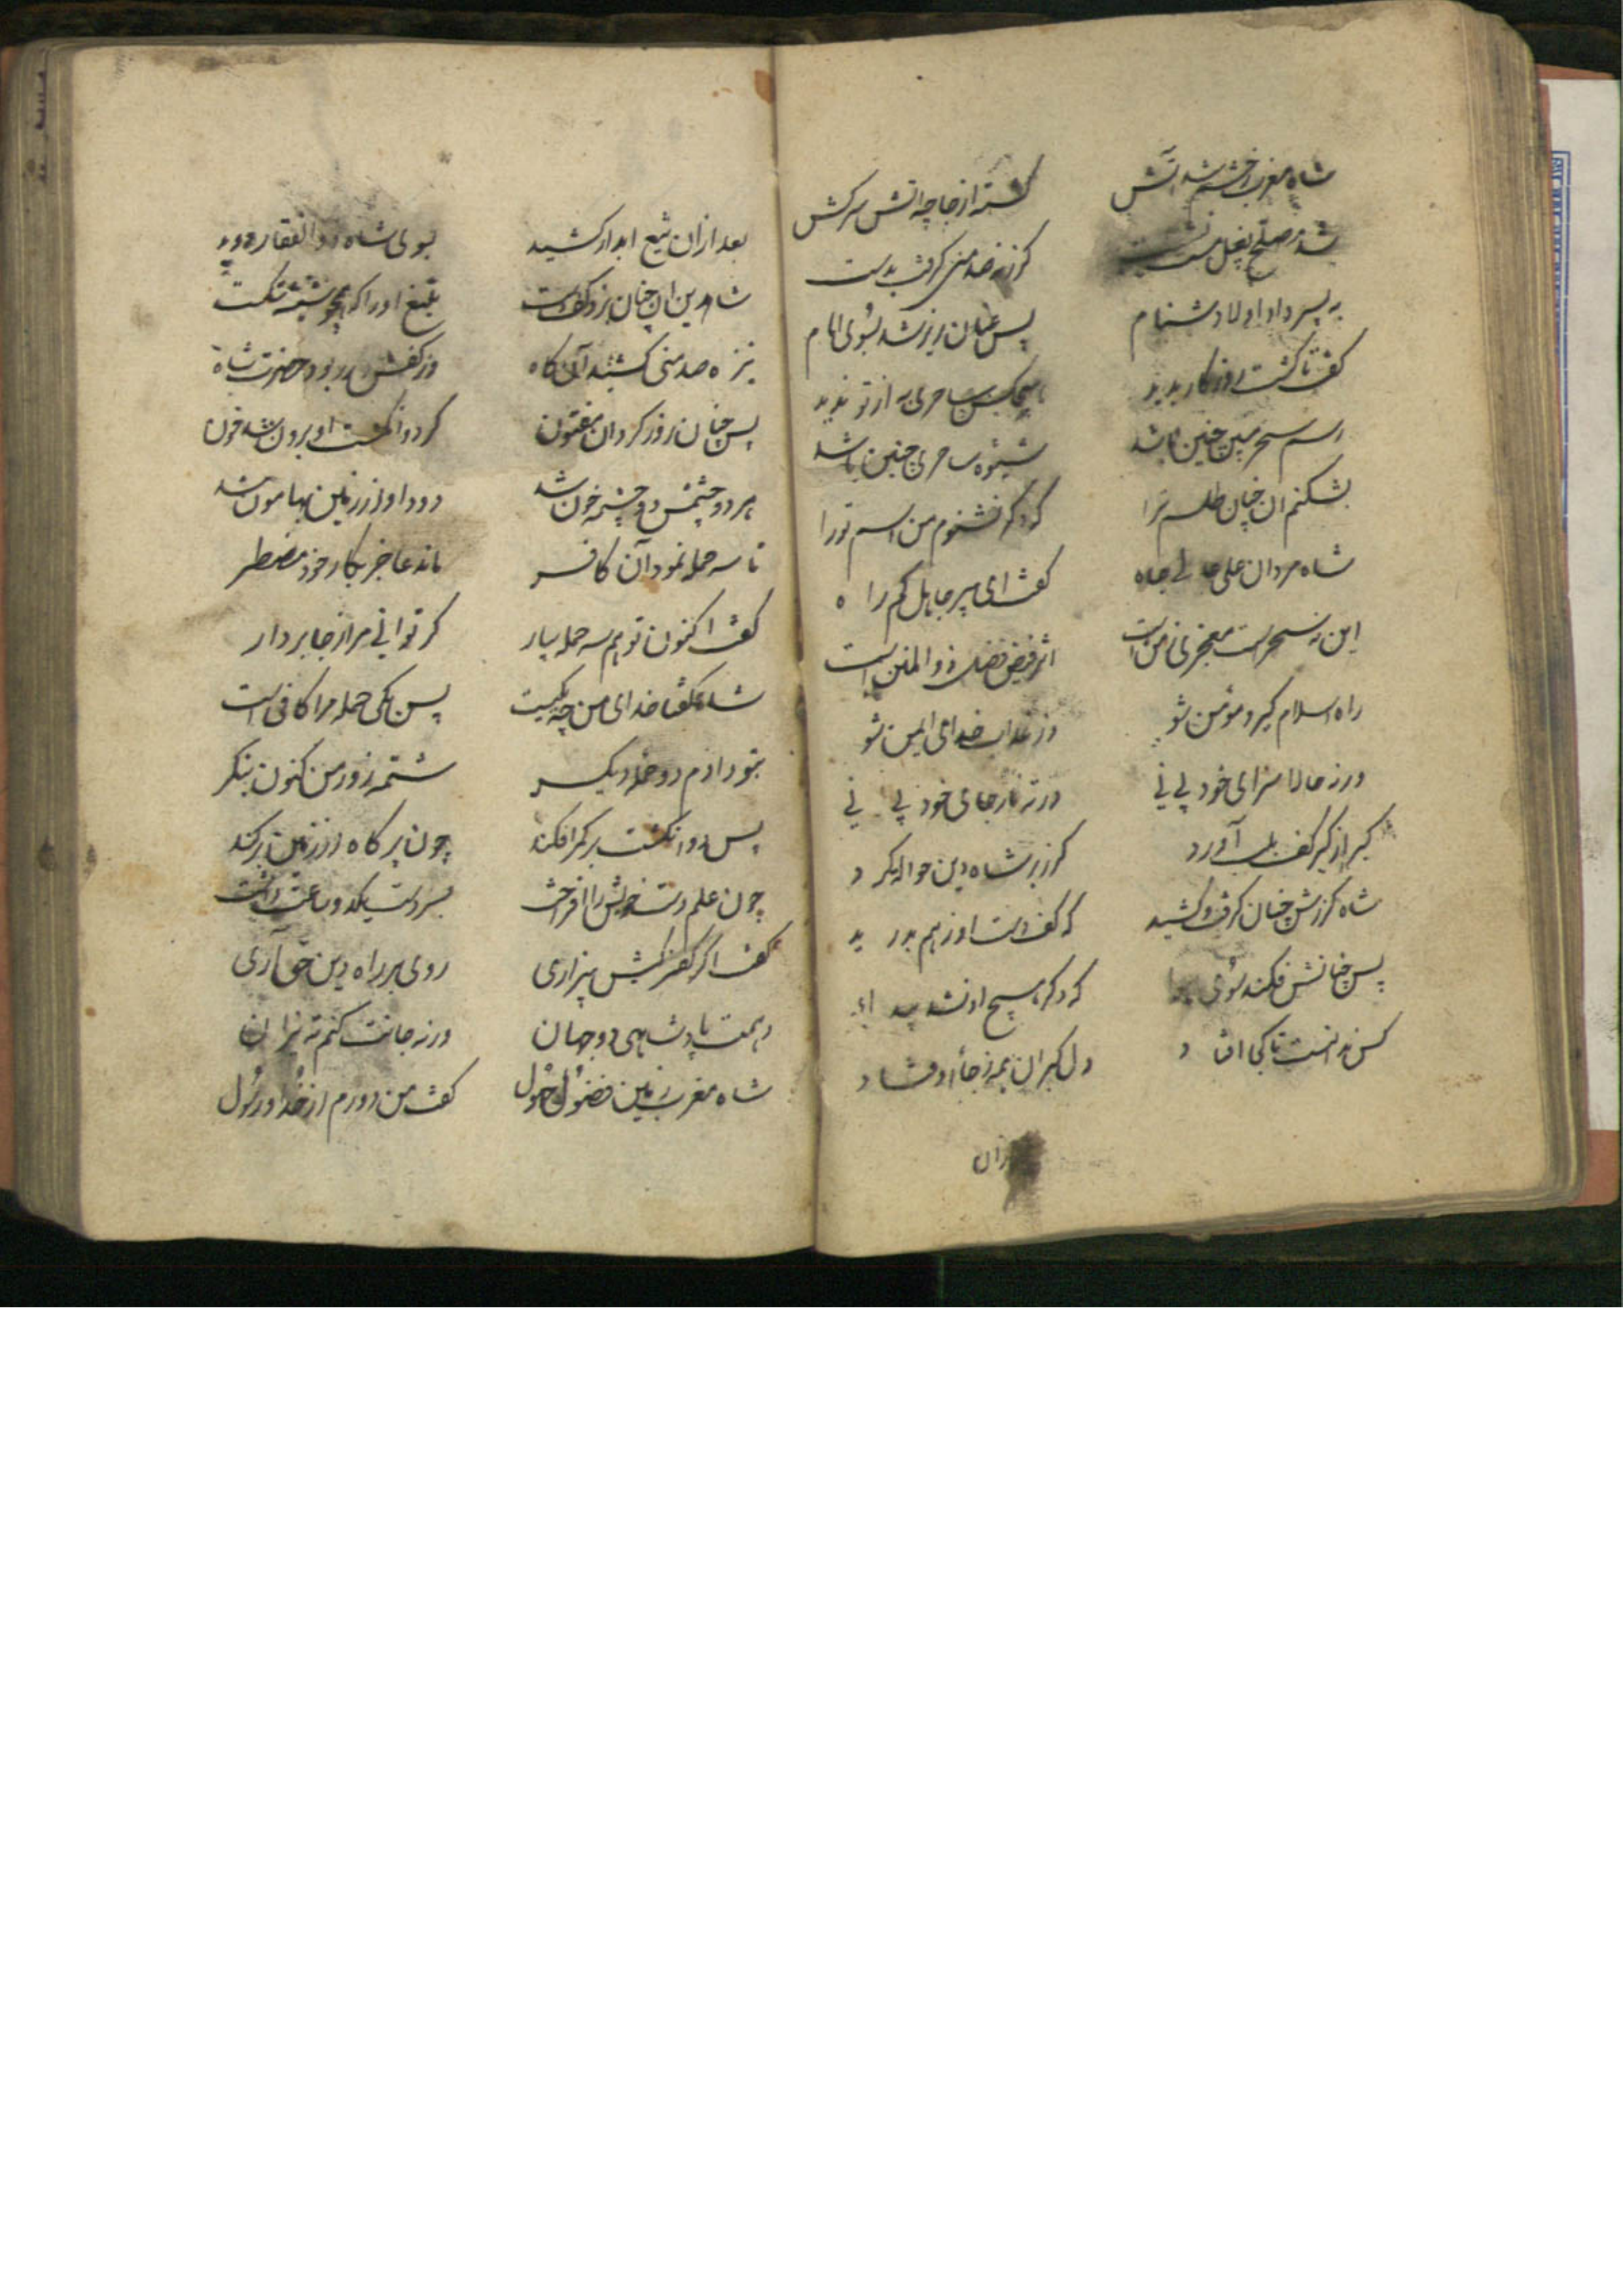 شاه مغرب ز خشم شد آتش کشته از جا چه اتش سرکش
شد مصلح بغل نشست کرز نه صد منی کرفت بدست
به پسر داد اولا دشنام پس عنان ریز شد بسوی امام
کفت تا کشت روزکار پدید هیچکس ساحری به از تو ندید
رسم سحر مبین چنین باشد شیوه ساحری چنین باشد
بشکنم ان چنان طلسم ترا که دکر نشنوم من اسم تورا
شاه مردان علی عالی جاه کفت ای پیر جاهل کم راه
این نه سحر است معجز من است اثر فیض فضل ذو المنن است
راه اسلام کیر و مومن شو وز عذاب خدای ایمن شو
ورنه حالا سزای خود بینی در ته نار جای خود بینی
کبر از کبر کف بلب آورد کرز بر شاه دین حواله کرد
شاه کرزش چنان کرفت و کشید که کف دست او ز هم بدرید
پس چنانش فکند سوی که دکر هیچ او نشد پیدا
کس ندانست تا کجا افتاد دل کبران همه ز جا افتاد
بعد ازان تیغ ابدار کشید بسوی شاه ذو الفقار دوید
شاه دین ان چنان بزد کف دست تیغ او را که همچو شیشه شکست
نیزه صد منی کشید آن کاه وز کفش در ربود حضرت شاه
پس چنان زور کرد ان مفتون کز دو انکشت او برون شد خون
هر دو چشمش دو چشمه خون شد دود او از زمین بهامون شد
تا سه حمله نمود آن کافر ماند عاجز بکار خود مضطر
کفت اکنون تو هم سه حمله بیار کر توانی مرا ز جا بردار
شاه کفتا خدای من چه یکیست پس یکی حمله مرا کافی است
بتو دادم دو حمله دیکر شمه زور من کنون بنکر
پس دو انکشت بر کمر افکند چون پر کاه از زمین برکند
چون علم دست خویش را افراخت بسر دست یکدو ساعت داشت
کفت اکر کفر کیش بیزاری روی بر راه دین حق آری
دهمت پادشاهی دو جهان ورنه جانت کنم ته نیران
شاه مغرب زمین فضول جهول کفت من دورم از خدا و رسول